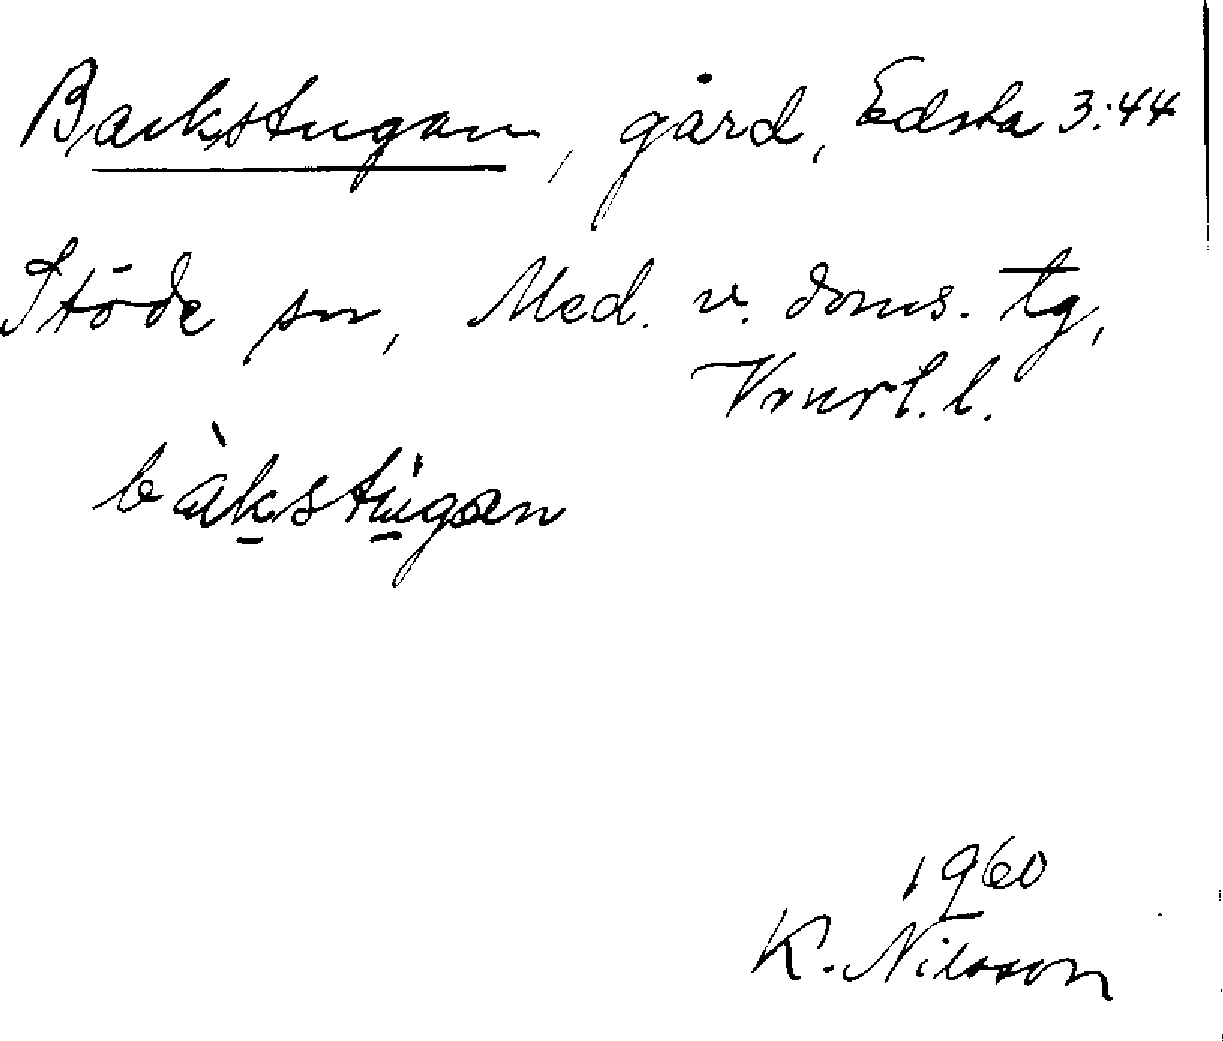 Backstugan, gård, Edsta 3:44
Stöde sn, Med. v. doms. tg,
Vnrl. l.
bàkstúgan
1960
K. Nilsson